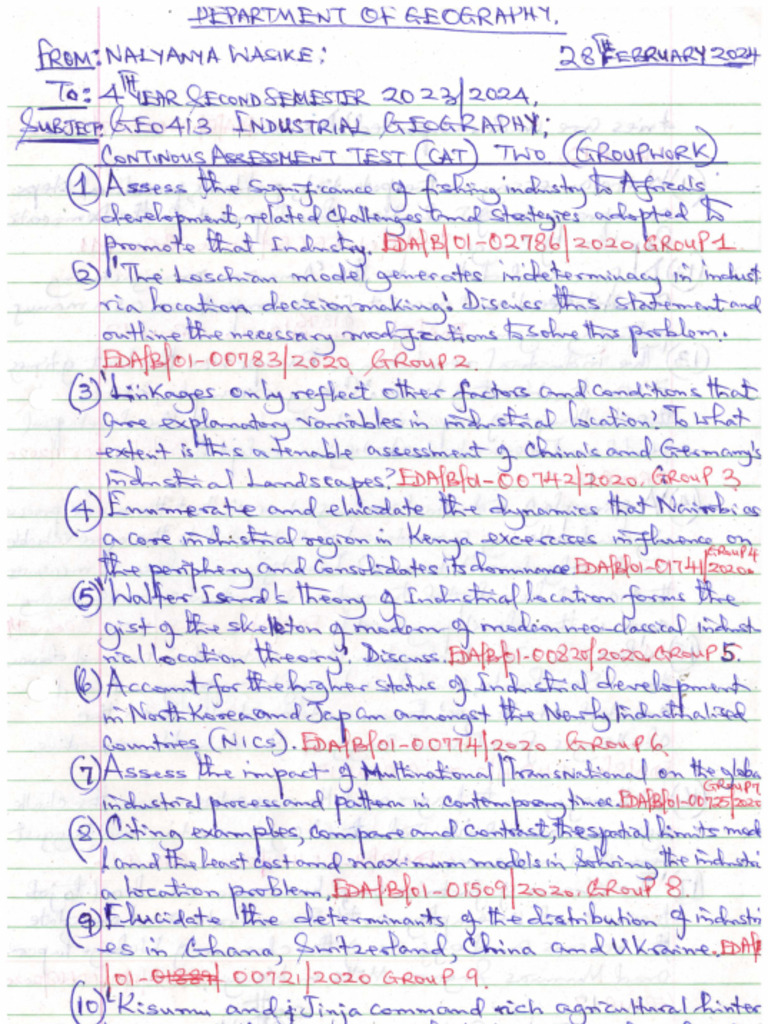 DEPARTMENT OF GEOGRAPHY.
FROM: NALYANYA WASIKE; 28TH FEBRUARY 2024
TO: 4TH YEAR SECOND SEMESTER 2023/2024,
SUBJECT: GEO413 INDUSTRIAL GEOGRAPHY;
CONTINOUS ASSESSMENT TEST (CAT) TWO (GROUPWORK)
(1) Assess the significance of fishing industry to Africa's
development, related challenges and strategies adopted to
promote that Industry. EDA/B/01-02786/2020 GROUP 1
(2) "The Loschian model generates indeterminacy in indust
rial location decision making'. Discuss this statement and
outline the necessary modifications to solve this problem.
EDA/B/01-00783/2020 GROUP 2.
(3) 'Linkages only reflect other factors and conditions that
are explanatory variables in industrial location'. To what
extent is this a tenable assessment of China's and Germany's
industrial Landscapes? EDA/B/01-00742/2020. GROUP 3
(4) Enumerate and elucidate the dynamics that Nairobi as
a core industrial region in Kenya excercises influence on
the periphery and consolidates its dominance EDA/B/01-01741/2020. GROUP 4
(5) "Walter Isard's theory of Industrial location forms the
gist of the skeleton of modern of modern neo-classical indust
rial location theory'. Discuss. EDA/B/01-00820/2020. GROUP 5.
(6) Account for the higher status of Industrial development
in North Korea and Japan amongst the Newly Industrialised
Countries (NICs). EDA/B/01-00774/2020 GROUP 6
(7) Assess the impact of Multinational/Transnational on the global
industrial process and pattern in contemporary times. EDA/B/01-00725/2020 GROUP 7
(8) Citing examples, compare and contrast, the spatial limits mod
l and the least cost and maximum models in Solving the industri
a location problem. EDA/B/01-01509/2020. GROUP 8.
(9) Elucidate the determinants of the distribution of industri
es in Ghana, Switzerland, China and Ukraine. EDA/B
/01-01889/ 00721/2020 GROUP 9.
(10) 'Kisumu and Jinja command rich agricultural hinter